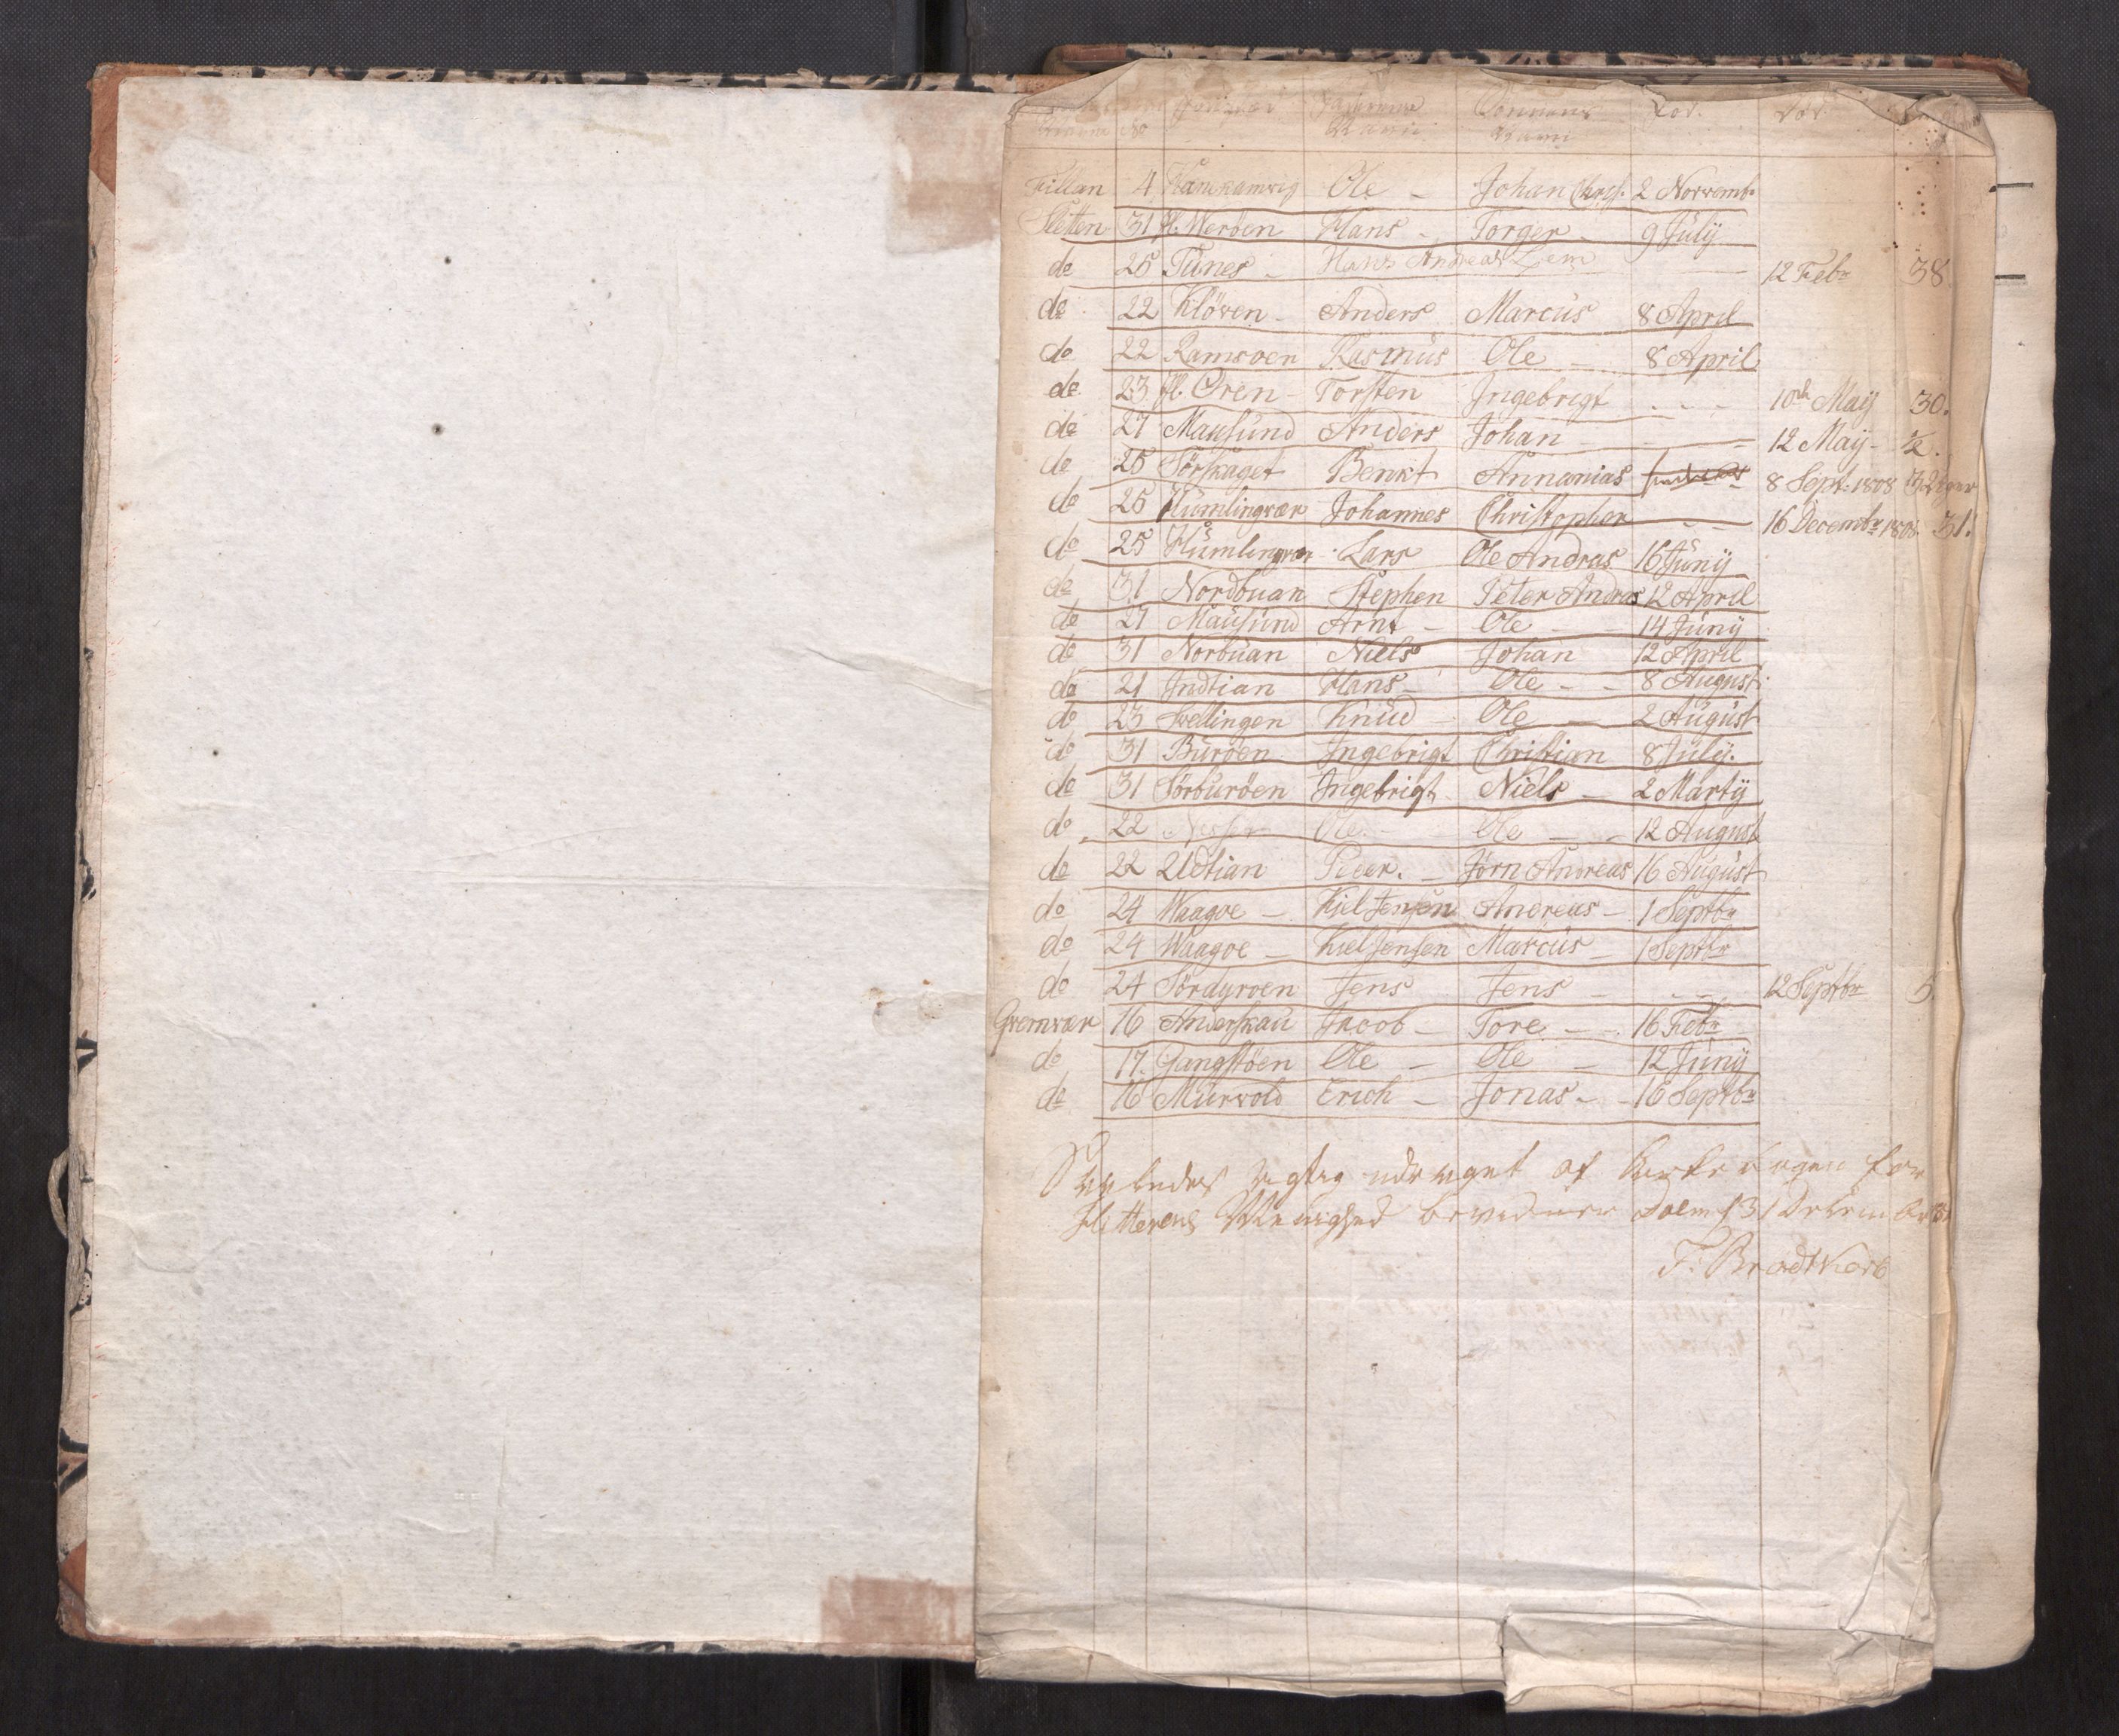 Faderens Sönnens Föd. Död.
Navn No Navn Navn
Fillan 4 Ole - Johan Chrest. 2 Novemb.
Sletten 31 fl. Weröen Hans - Torger - 9 July
do 25 Tunes - Hans Andreas Lem 12 Febr 38
do 22 Klöven - Anders Marcus 8 April
do 22 Ramsoen Rasmus Ole - 8 April
do 23 fl. Ören - Torsten Ingebrigt - - - 10de Maij 30.
do 27 Mausund Anders Johan - - 12 Maij - ½.
do 25 Sörskaget Benkt Annanias 8 Sept. 1808 32
do 25 Humlingvær Johannes Christopher - - 16 Decembr 1808 31.
do 25 Humlingvær Lars Ole Andras 16 Juny
do 31 Nordbuan Stephen Peter Andras 12 April
do 27 Mausund Arnt - Ole - 14 Juny
do 31 Norbuan Niels Johan 12 April
do 21 Indtian Hans - Ole - - 8 August
do 23 Svellingen Knud - Ole - 2 August
do 31 Buröen Ingebrigt Christian 8 July.
do 31 Sörburöen Ingebrigt Niels - 2 Marty
do 22 Ole - Ole - - 12 August
do 22 Udtian Peer. - Jörn Andreas 16 August
do 24 Waagoe - Kiel Jensen Andreas - 1 Septbr
do 24 Waagoe - Kiel Jensen Marcus - 1 Septbr
do 24 Sördyroen Jens Jens - - - 12 Septbr 5.
16 Anderskau Jacob - Tore - - 16 Febr
do 17. Gangstöen Ole - Ole - 12 Juny
do 16 Murvold Erich - Jonas - - 16 Septbr
Saaledes rigtig uddraget af Kirkebogen for
Hitterens Menighed bevidner Dolm d 31 December
F. Bradtkorb